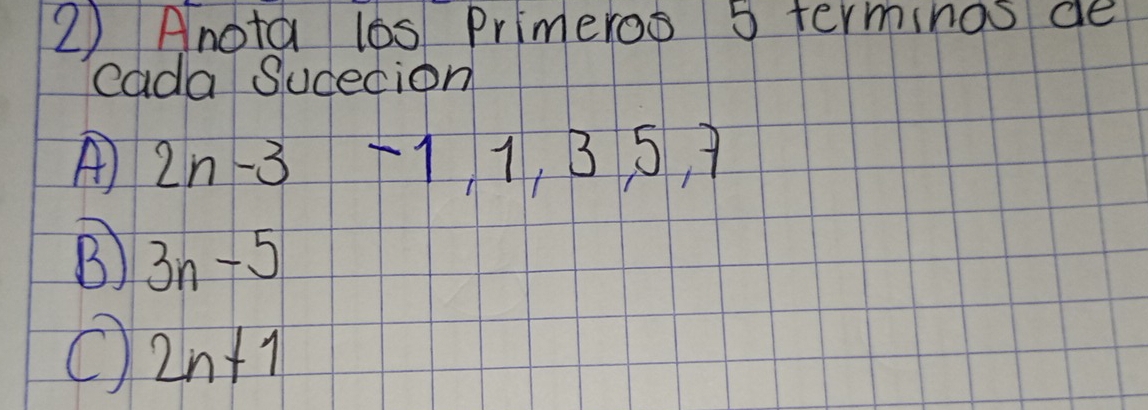 2) Anota los Primeros 5 terminos de
cada Sucecion
A) 2n-3 -1, 1, 3, 5, 7
B) 3n-5
C) 2n+1